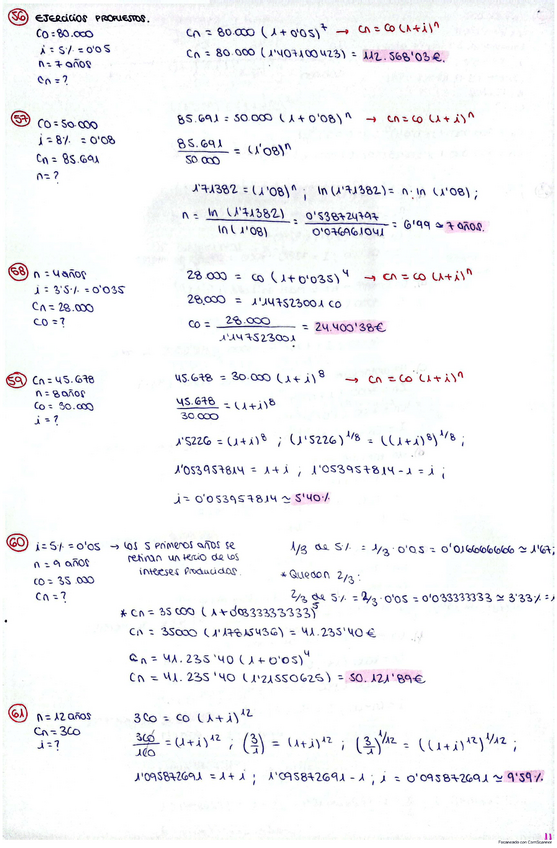 56 EJERCICIOS PROPUESTOS.
C0=80.000
i = 5% = 0'05
n = 7 años
Cn = ?
Cn = 80.000 (1+0'05)^7 → Cn = C0 (1+i)^n
Cn = 80.000 (1'407100423) = 112.568'03€.
57 C0=50.000
i = 8% = 0'08
Cn = 85.691
n = ?
85.691 = 50.000 (1+0'08)^n → Cn = C0 (1+i)^n
85.691/50.000 = (1'08)^n
1'71382 = (1'08)^n ; ln(1'71382) = n · ln (1'08) ;
n = ln (1'71382)/ln (1'08) = 0'538724797/0'076961041 = 6'99 ≃ 7 años.
58 n = 4 años
i = 3'5% = 0'035
Cn = 28.000
C0 = ?
28.000 = C0 (1+0'035)^4 → Cn = C0 (1+i)^n
28.000 = 1'147523001 C0
C0 = 28.000/1'147523001 = 24.400'38€
59 Cn = 45.678
n = 8 años
C0 = 30.000
i = ?
45.678 = 30.000 (1+i)^8 → Cn = C0 (1+i)^n
45.678/30.000 = (1+i)^8
1'5226 = (1+i)^8 ; (1'5226)^1/8 = ((1+i)^8)^1/8 ;
1'053957814 = 1+i , 1'053957814 - 1 = i ;
i = 0'053957814 ≃ 5'40%
60 i = 5% = 0'05 → Los 5 primeros años se
retiran un tercio de los
intereses producidos.
n = 9 años
C0 = 35.000
Cn = ?
1/3 de 5% = 1/3 · 0'05 = 0'0166666666 ≃ 1'67%
* Quedan 2/3:
2/3 de 5% = 2/3 · 0'05 = 0'03333333 ≃ 3'33% =
* Cn = 35000 (1+0'0333333333)^5
Cn = 35000 (1'17815436) = 41.235'40€
Cn = 41.235'40 (1+0'05)^4
Cn = 41.235'40 (1'21550625) = 50.121'89€
61 n = 12 años
Cn = 3C0
i = ?
3C0 = C0 (1+i)^12
3C0/1C0 = (1+i)^12 ; (3/1) = (1+i)^12 ; (3/1)^1/12 = ((1+i)^12)^1/12 ;
1'095872691 = 1+i ; 1'095872691 - 1 ; i = 0'095872691 ≃ 9'59%
11
Escaneado con CamScanner